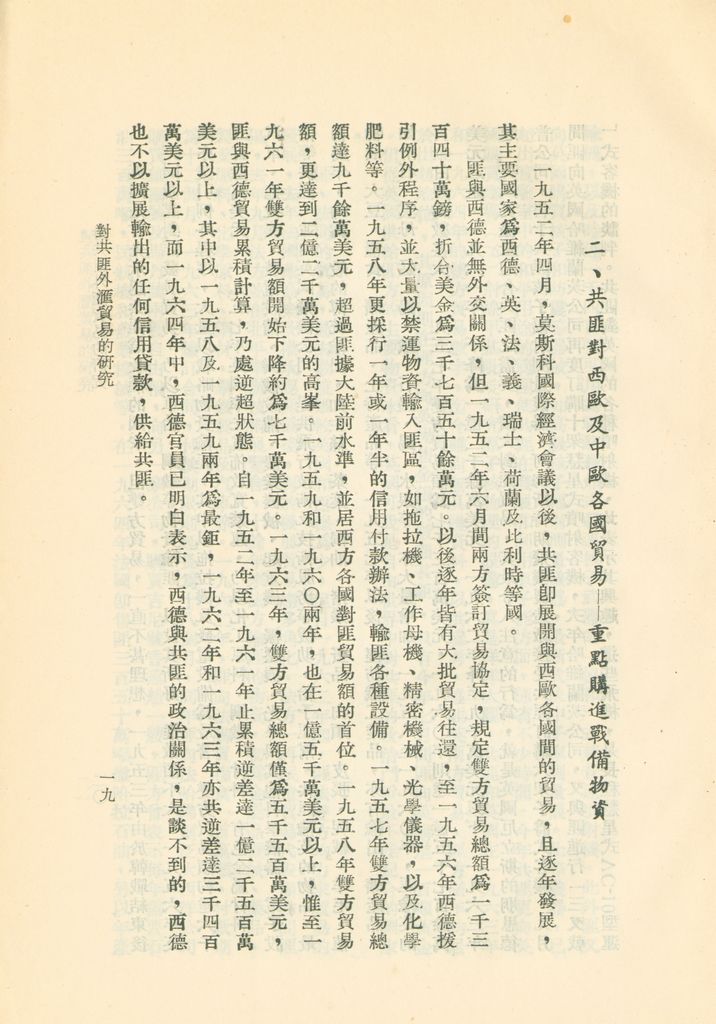 二、共匪對西歐及中歐各國貿易——重點購進戰備物資
一九五二年四月，莫斯科國際經濟會議以後，共匪卽展開與西歐各國間的貿易，且逐年發展，
其主要國家爲西德、英、法、義、瑞士、荷蘭及比利時等國。
匪與西德並無外交關係，但一九五二年六月間兩方簽訂貿易協定，規定雙方貿易總額爲一千三
百四十萬鎊，折合美金爲三千七百五十餘萬元。以後逐年皆有大批貿易往還，至一九五六年西德援
引例外程序，並大量以禁運物資輸入匪區，如拖拉機、工作母機、精密機械、光學儀器，以及化學
肥料等。一九五八年更採行一年或一年半的信用付款辦法，輸匪各種設備。一九五七年雙方貿易總
額達九千餘萬美元，超過匪據大陸前水準，並居西方各國對匪貿易額的首位。一九五八年雙方貿易
額，更達到二億二千萬美元的高峯。一九五九和一九六〇兩年，也在一億五千萬美元以上，惟至一
九六一年雙方貿易額開始下降約爲七千萬美元。一九六三年，雙方貿易總額僅爲五千五百萬美元，
匪與西德貿易累積計算，乃處逆超狀態。自一九五二年至一九六一年止累積逆差達一億二千五百萬
美元以上，其中以一九五八及一九五九兩年爲最鉅，一九六二年和一九六三年亦共逆差達三千四百
萬美元以上，而一九六四年中，西德官員已明白表示，西德與共匪的政治關係，是談不到的，西德
也不以擴展輸出的任何信用貸款，供給共匪。
對共匪外滙貿易的研究
一九